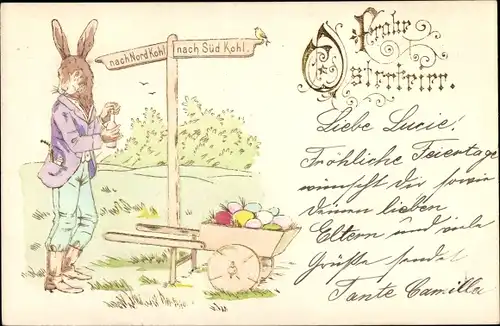 nach Nord Kohl.
nach Süd Kohl.
Frohe
Osterfeier.
Liebe Lucie!
Fröhliche Feiertage
wünscht dir, sowie
deinen lieben
Eltern und viele
Grüße sendet
Tante Camilla